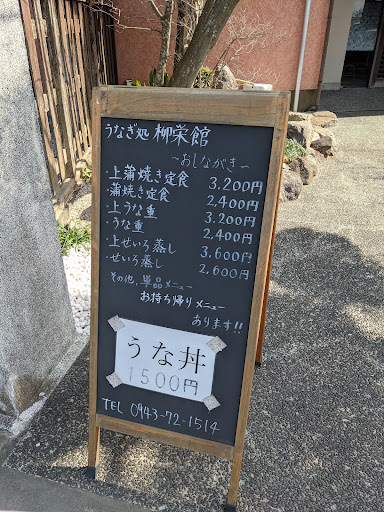 うなぎ処 柳栄館
〜おしながき〜
・上蒲焼き定食 3.200円
・蒲焼き定食 2.400円
・上うな重 3.200円
・うな重 2.400円
・上せいろ蒸し 3.600円
・せいろ蒸し 2.600円
その他、単品メニュー
お持ち帰りメニュー
あります!!
うな丼
1500円
TEL 0943-72-1514